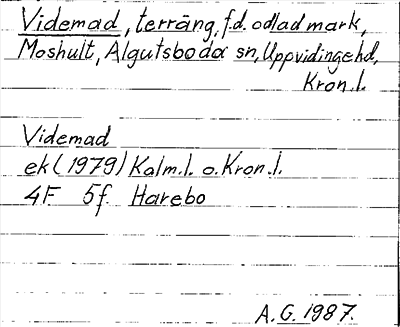 Videmad, terräng, f.d. odlad mark,
Moshult, Algutsboda sn, Uppvidinge hd,
Kron.l.
Videmad
ek (1979) Kalm.l. o. Kron.l.
4F 5f Harebo
A.G. 1987.